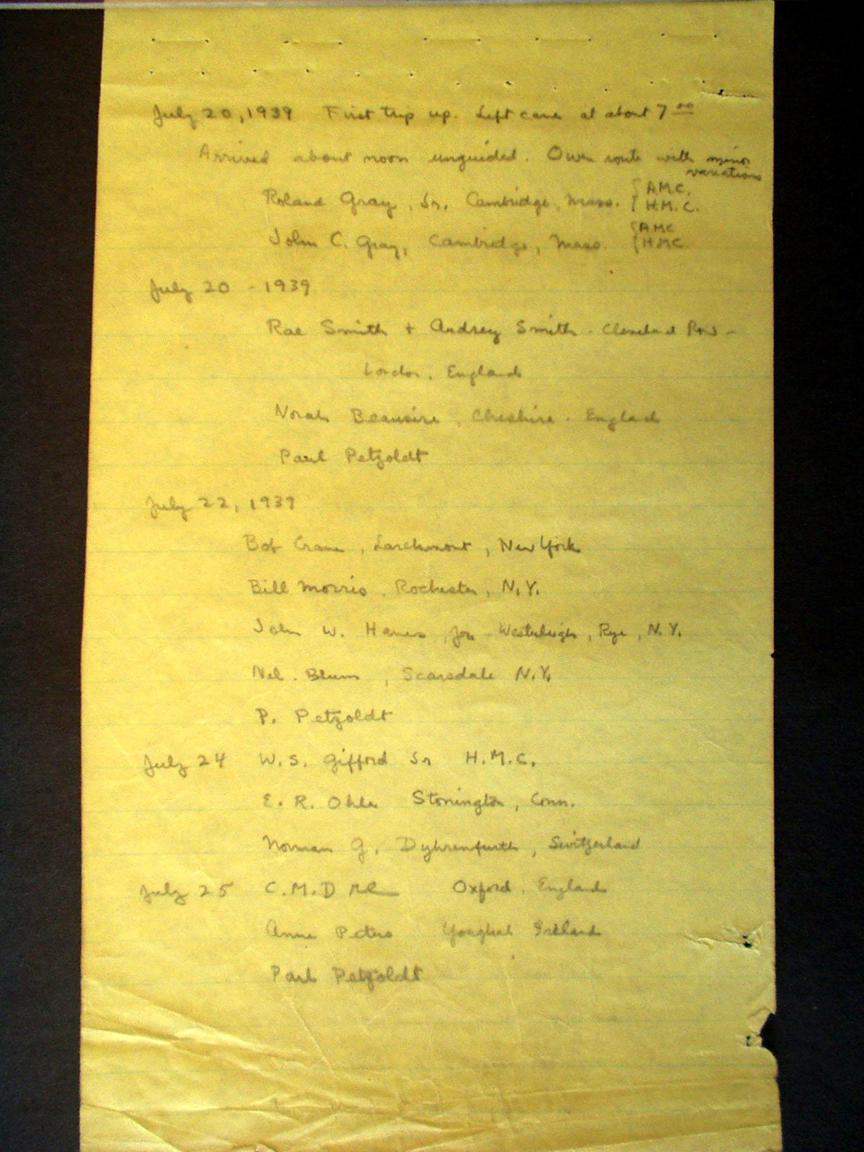 July 20, 1939 First trip up. Left cave at about 7 00
Arrived about noon unguided. Owen route with minor variations
Roland Gray, Sr. Cambridge, Mass. { A.M.C. H.M.C.
John C. Gray, Cambridge, Mass. { AMC HMC
July 20 - 1939
Rae Smith + Audrey Smith - Cleveland Row -
London, England
Norah Beausire, Cheshire - England
Paul Petzoldt
July 22, 1939
Bob Crane, Larchmont, New York
Bill Morris, Rochester, N.Y.
John W. Hanes, Jr. Westerleigh, Rye, N.Y.
Blum, Scarsdale N.Y.
P. Petzoldt
July 24 W. S. Gifford Sr H.M.C.
E. R. Stonington, Conn.
Norman G. Dyhrenfurth, Switzerland
July 25 C.M.D Oxford, England
Anne Peters Youghal Ireland
Paul Petzoldt